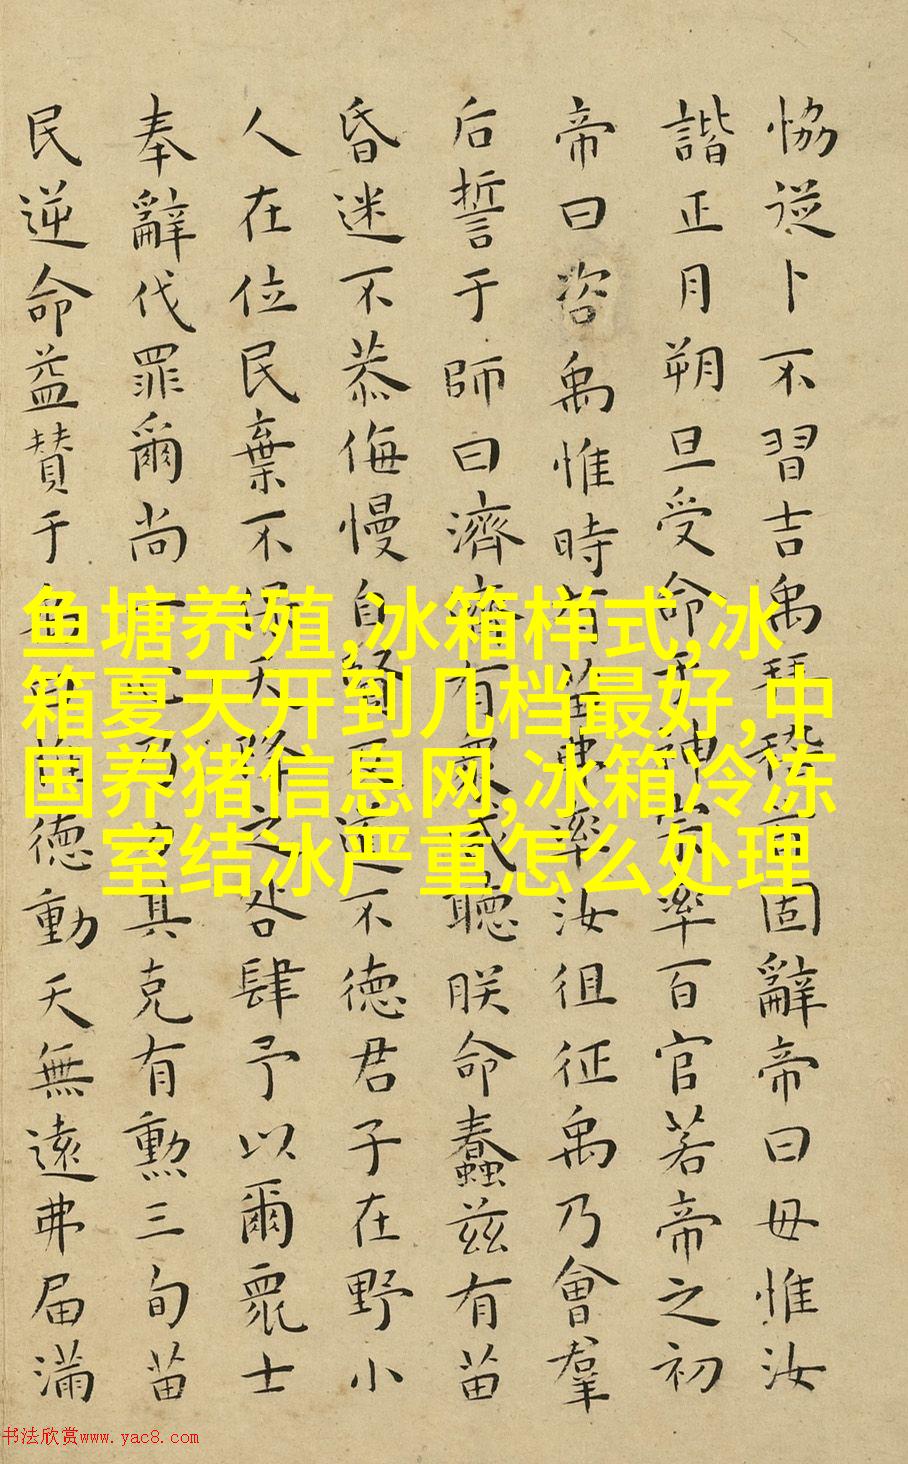 恊從卜不習吉禹拜稽首固辭帝曰毋惟汝
諧正月朔旦受命于神宗率百官若帝之初
帝曰咨禹惟時有苗弗率汝徂征禹乃會羣
后誓于師曰濟濟有衆咸聽朕命蠢兹有苗
昏迷不恭侮慢自賢反道不德君子在野小
人在位民棄不保天降之咎肆予以爾衆士
奉辭伐罪爾尚一乃心力其克有勲三旬苗
民逆命益贊于禹曰惟德動天無遠弗届滿
鱼塘养殖,冰箱样式,冰
箱夏天开到几档最好,中
国养猪信息网,冰箱冷冻
室结冰严重怎么处理
书法欣赏www.yac8.com